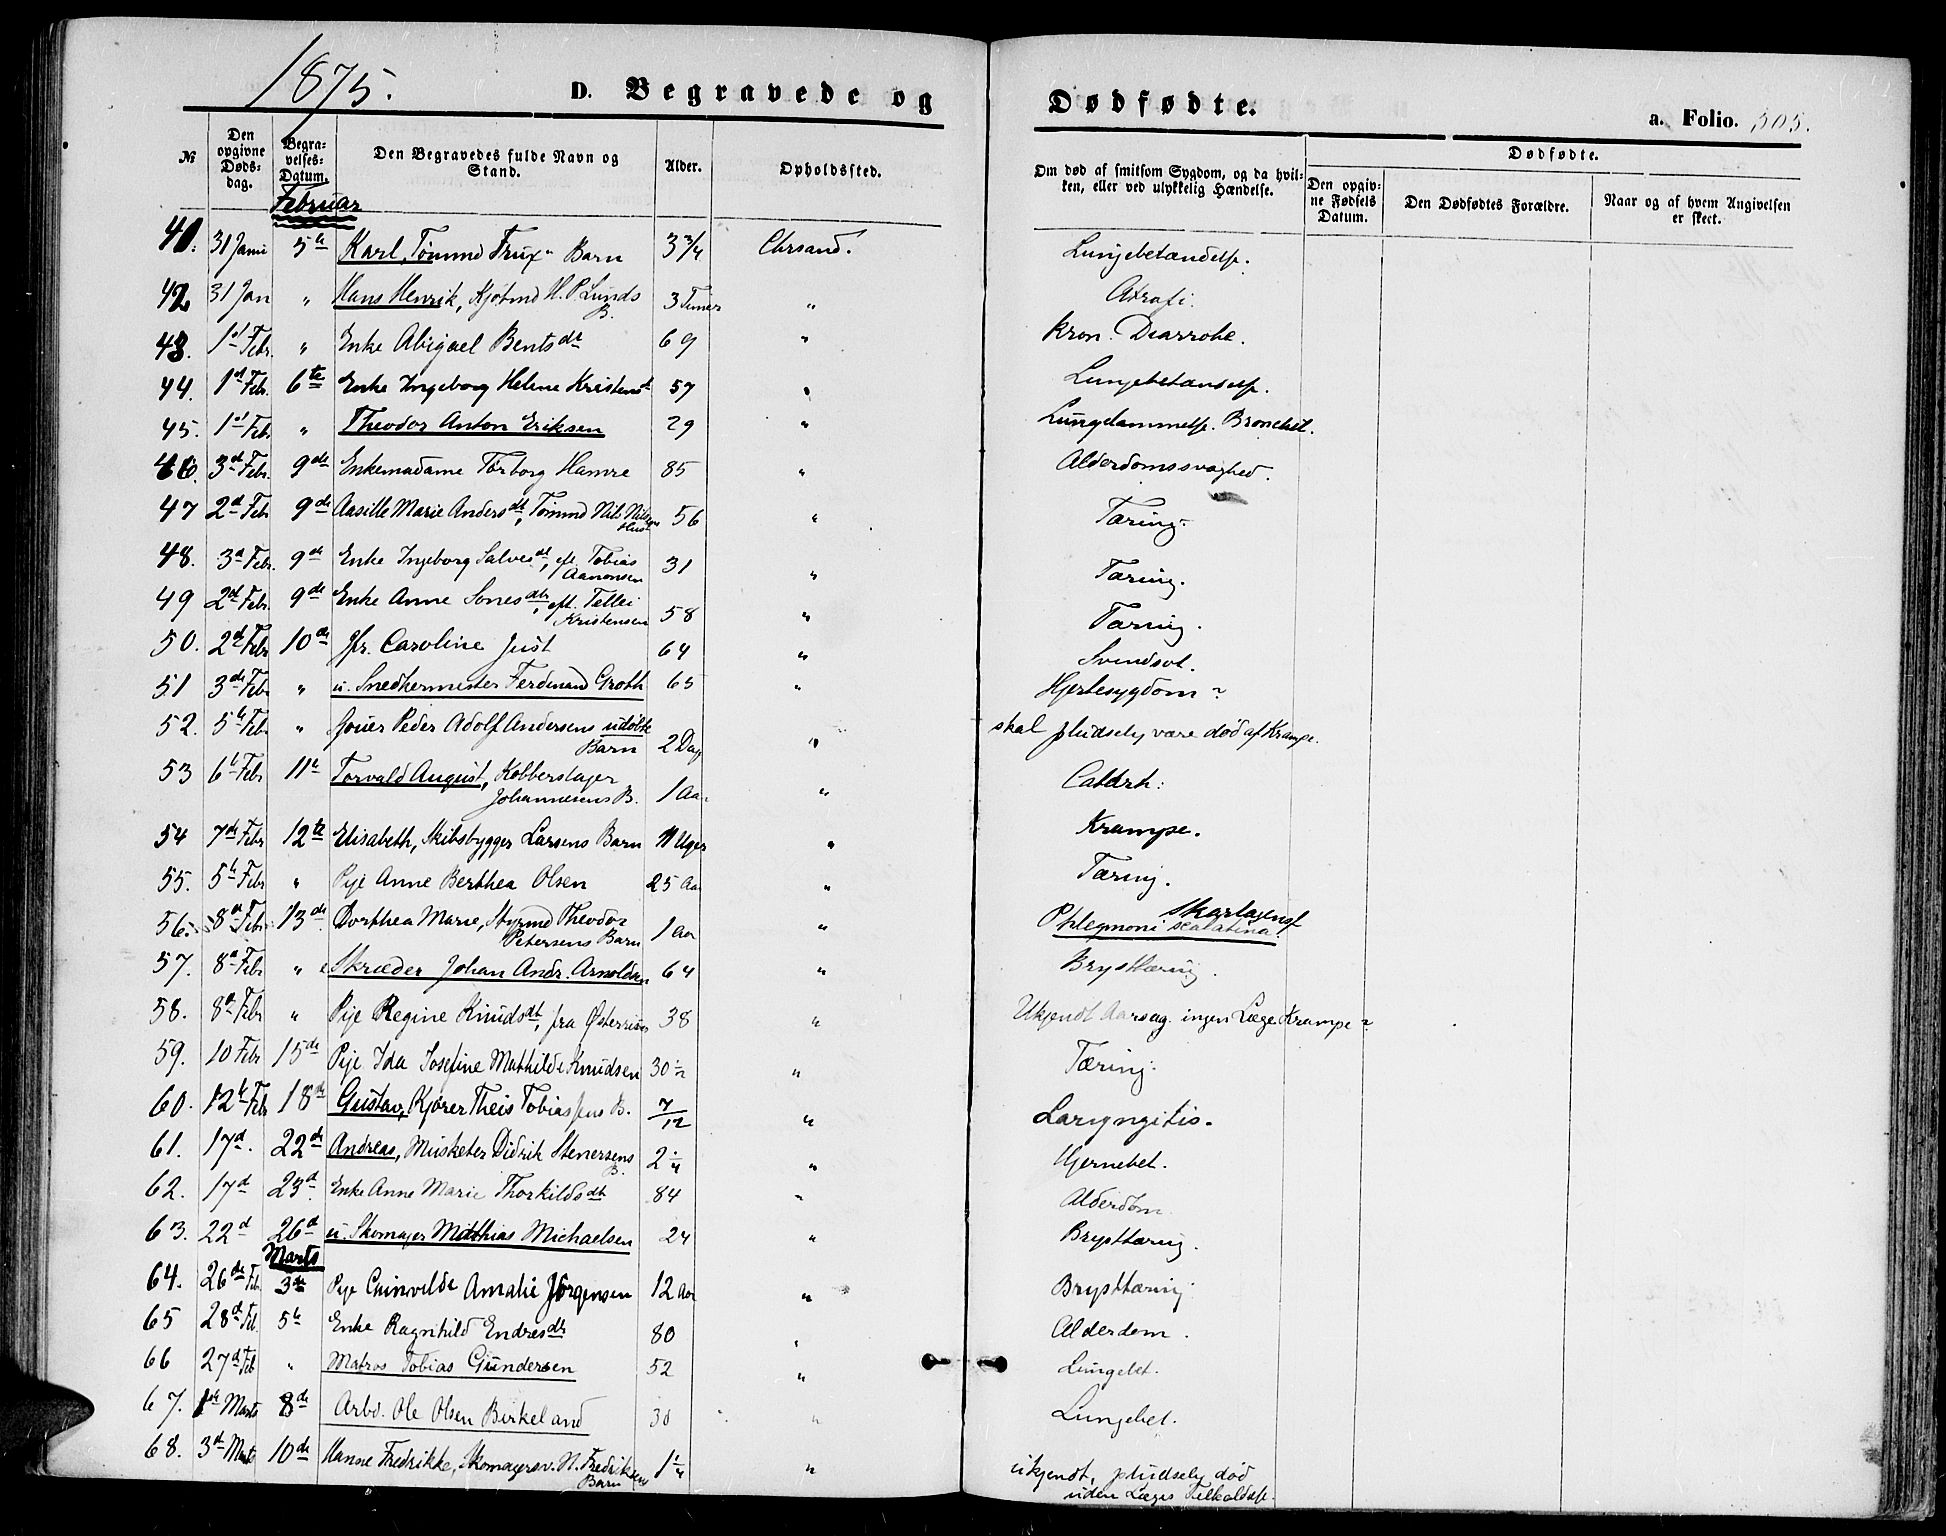 1875.
D. Begravede og
Dødfødte.
a. Folio. 305.
№
Den opgivne Døds-dag.
Begra-velses-Datum.
Den Begravedes fulde Navn og Stand.
Alder.
Opholdssted.
Om død af smitsom Sygdom, og da hvil-ken, eller ved ulykkelig Hændelse.
Dødfødte.
Den opgiv-ne Fødsels Datum.
Den Dødfødtes Forældre.
Naar og af hvem Angivelsen er skeet.
Februar
41. 31 Janu 5te Karl, Tømmd Frux" Barn 3 3/4 Chrsand. Lungebetændelse.
42 31 Jan " Hans Henrik, Kjøbmd H. P. Lunds B. 3 Timer " Atrofi.
43. 1st Febr. " Enke Abigael Bentsdt 69 " kron. Diarrohe.
44. 1st Febr. 6te Enke Ingeborg Helene Kristensdt 57 " Lungebetændelse.
45. 1st Febr " Theodor Anton Eriksen 29 " Lungelammelse. Bronchit.
46. 3d Febr. 9de Enkemadame Torborg Hamre 85 " Alderdomssvaghed.
47 2d Febr 9de Aasille Marie Andersdt, Tømmd Nils Nilsens Hust 56 " Tæring.
48. 3d Febr. 9de Enke Ingeborg Salvesdt, eft. Tobias Aanonsen 31 " Tæring.
49 2d Febr. 9de Enke Anne Sonesdtr, eft. Tellei Kristensen 58 " Tæring.
50. 2d Febr 10de Jfr. Caroline Just 64 " Svindsot.
51 3de Febr " u. Snedkermester Ferdinand Groth 65 " Hjertesygdom
52. 5te Febr " Peder Adolf Andersens udøbte Barn 2 Dag " skal pludselig være død af Krampe.
53 6te Febr 11te Torvald August, Kobberslager Johannesens B. 1 Aar " Catarrh.
54 7de Febr 12te Elisabeth, Skibsbygger Larsens Barn 11 Uger " Krampe.
55. 5te Febr " Pige Anne Berthea Olsen 25 Aar " Tæring.
56. 8de Febr 13de Dorthea Marie, Styrmd Theodor Petersens Barn 1 Aar " Phlegmoni scalatina. Skarlagensf
57. 8de Febr " Skræder Johan Andr. Arnoldsen 64 " Brysttæring.
58. 8de Febr " Pige Regine Knudsdt, fra Østerriisør 38 " Ukjendt Aarsag. ingen Læge Krampe?
59. 10 Febr 15de Pige Ida Josefine Mathilde Knudsen 30 1/2 " Tæring.
60. 12te Febr 18de Gustav, Kjører Theis Tobiassens B. 7/12 " Laryngitis.
61. 17d. 22de Andreas, Musketer Didrik Stenersens B. 2 1/4 " Hjernebet.
62. 17d 23d. Enke Anne Marie Thorkildsdt 84 " Alderdom
63. 22d 26d u. Skomager Matthias Michaelsen 24 " Brysttæring.
Marts
64. 26de Feb. 3de Pige Gunvilde Amalie Jørgensen 12 Aar " Brysttæring
65 28d Feb. 5te Enke Ragnhild Endresdtr 80 " Alderdom.
66 27d Feb " Matros Tobias Gundersen 52 " Lungebet.
67. 1ste Marts 8de Arbd. Ole Olsen Birkeland 30 " Lungebet.
68. 3d Marts 10de Hanne Fredrikke, Skomagersv. N. Fredriksens Barn 1 1/4 " ukjendt, pludselig død
uden Læges Tilkaldelse.